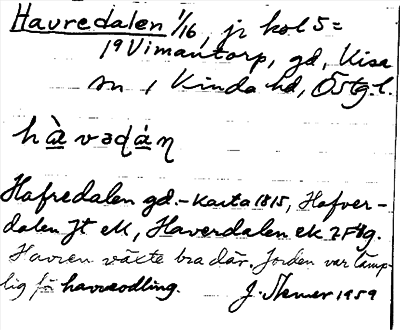 Havredalen 1/16, jr kol 5 =
1⁹ Vimantorp, gd, Kisa
sn, Kinda hd, Östg. l.
hàvədáɳ
Hafredalen gd. – Karta 1815, Hafver-
dalen Jt ek, Haverdalen ek
Havren växte bra där. Jorden var lämp-
lig för havreodling. J. Skener 1959